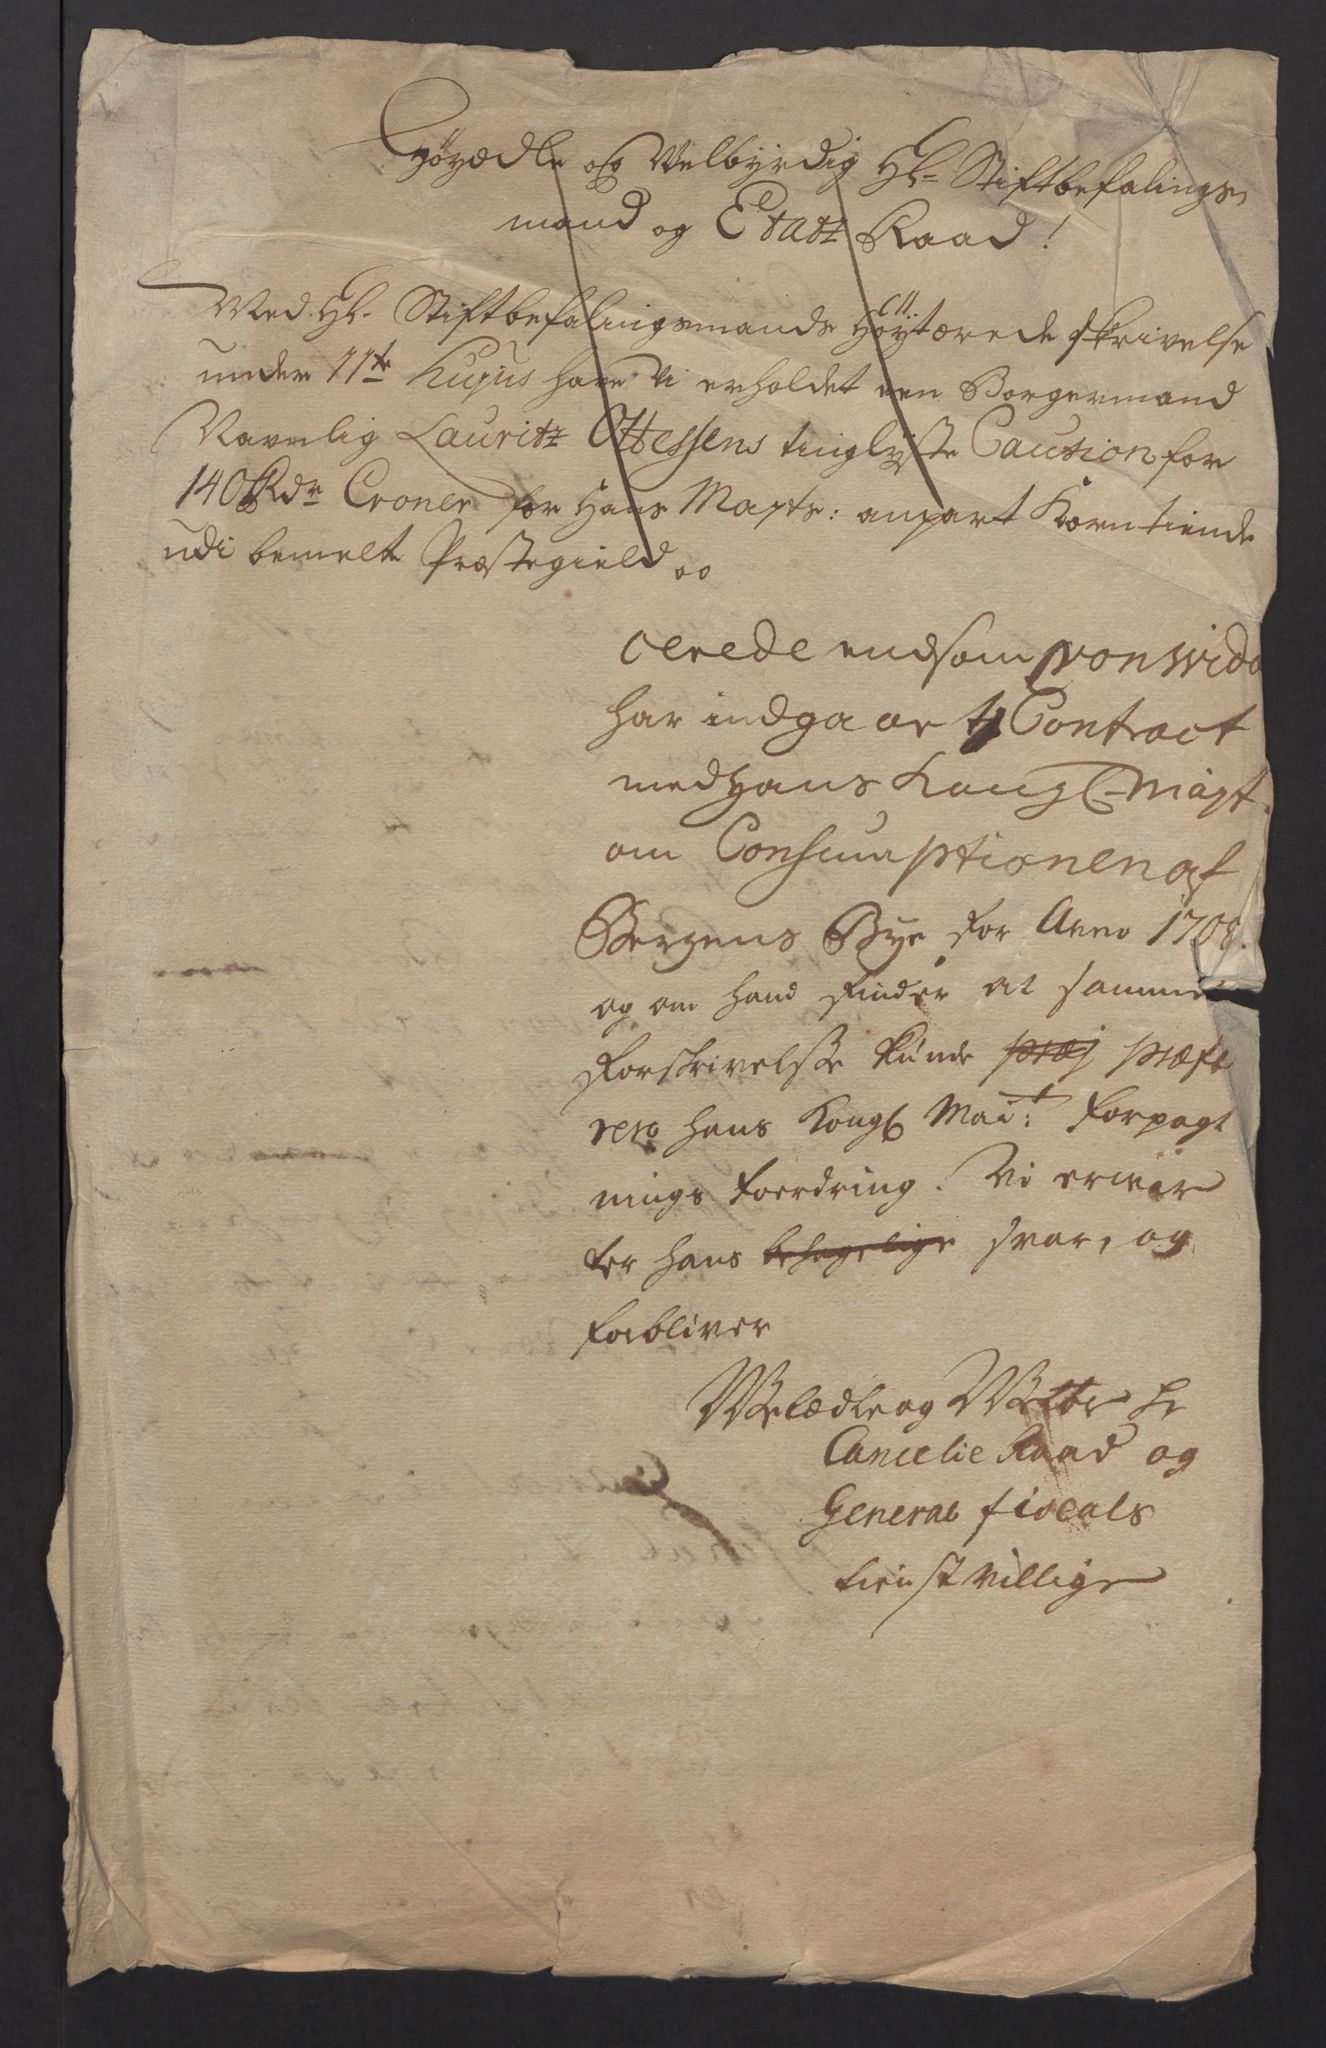 Høyædle og Velbyrdig Hr= Stiftbefalings,
mand og Etatz Raad!
Med Hr. Stiftbefalingsmands Høytærede skrivelse
under 11te hujus have Vi erholdet een Borgermand
Navnlig Lauritz Ottessens tinglyste Caution for
140 Rdr Croner for Hans Mayts: anpart Korntiende
udi bemelte Præstegield
cerede endsom von Wida
har indgaaet Contract
med hans Kongl- Mayt.
om Consumptionen af
Bergens Bye for Anno 1708.
og om hand finder at samme
forskrivelse kunde præj præfe
rero hans Kongl Mait: forpagt
nings fordring. Vi erwar
ter hans behagelige svar, og
forbliver
Welædle og Hr
Cancelie Raad og
General fiscals
tienstvillige